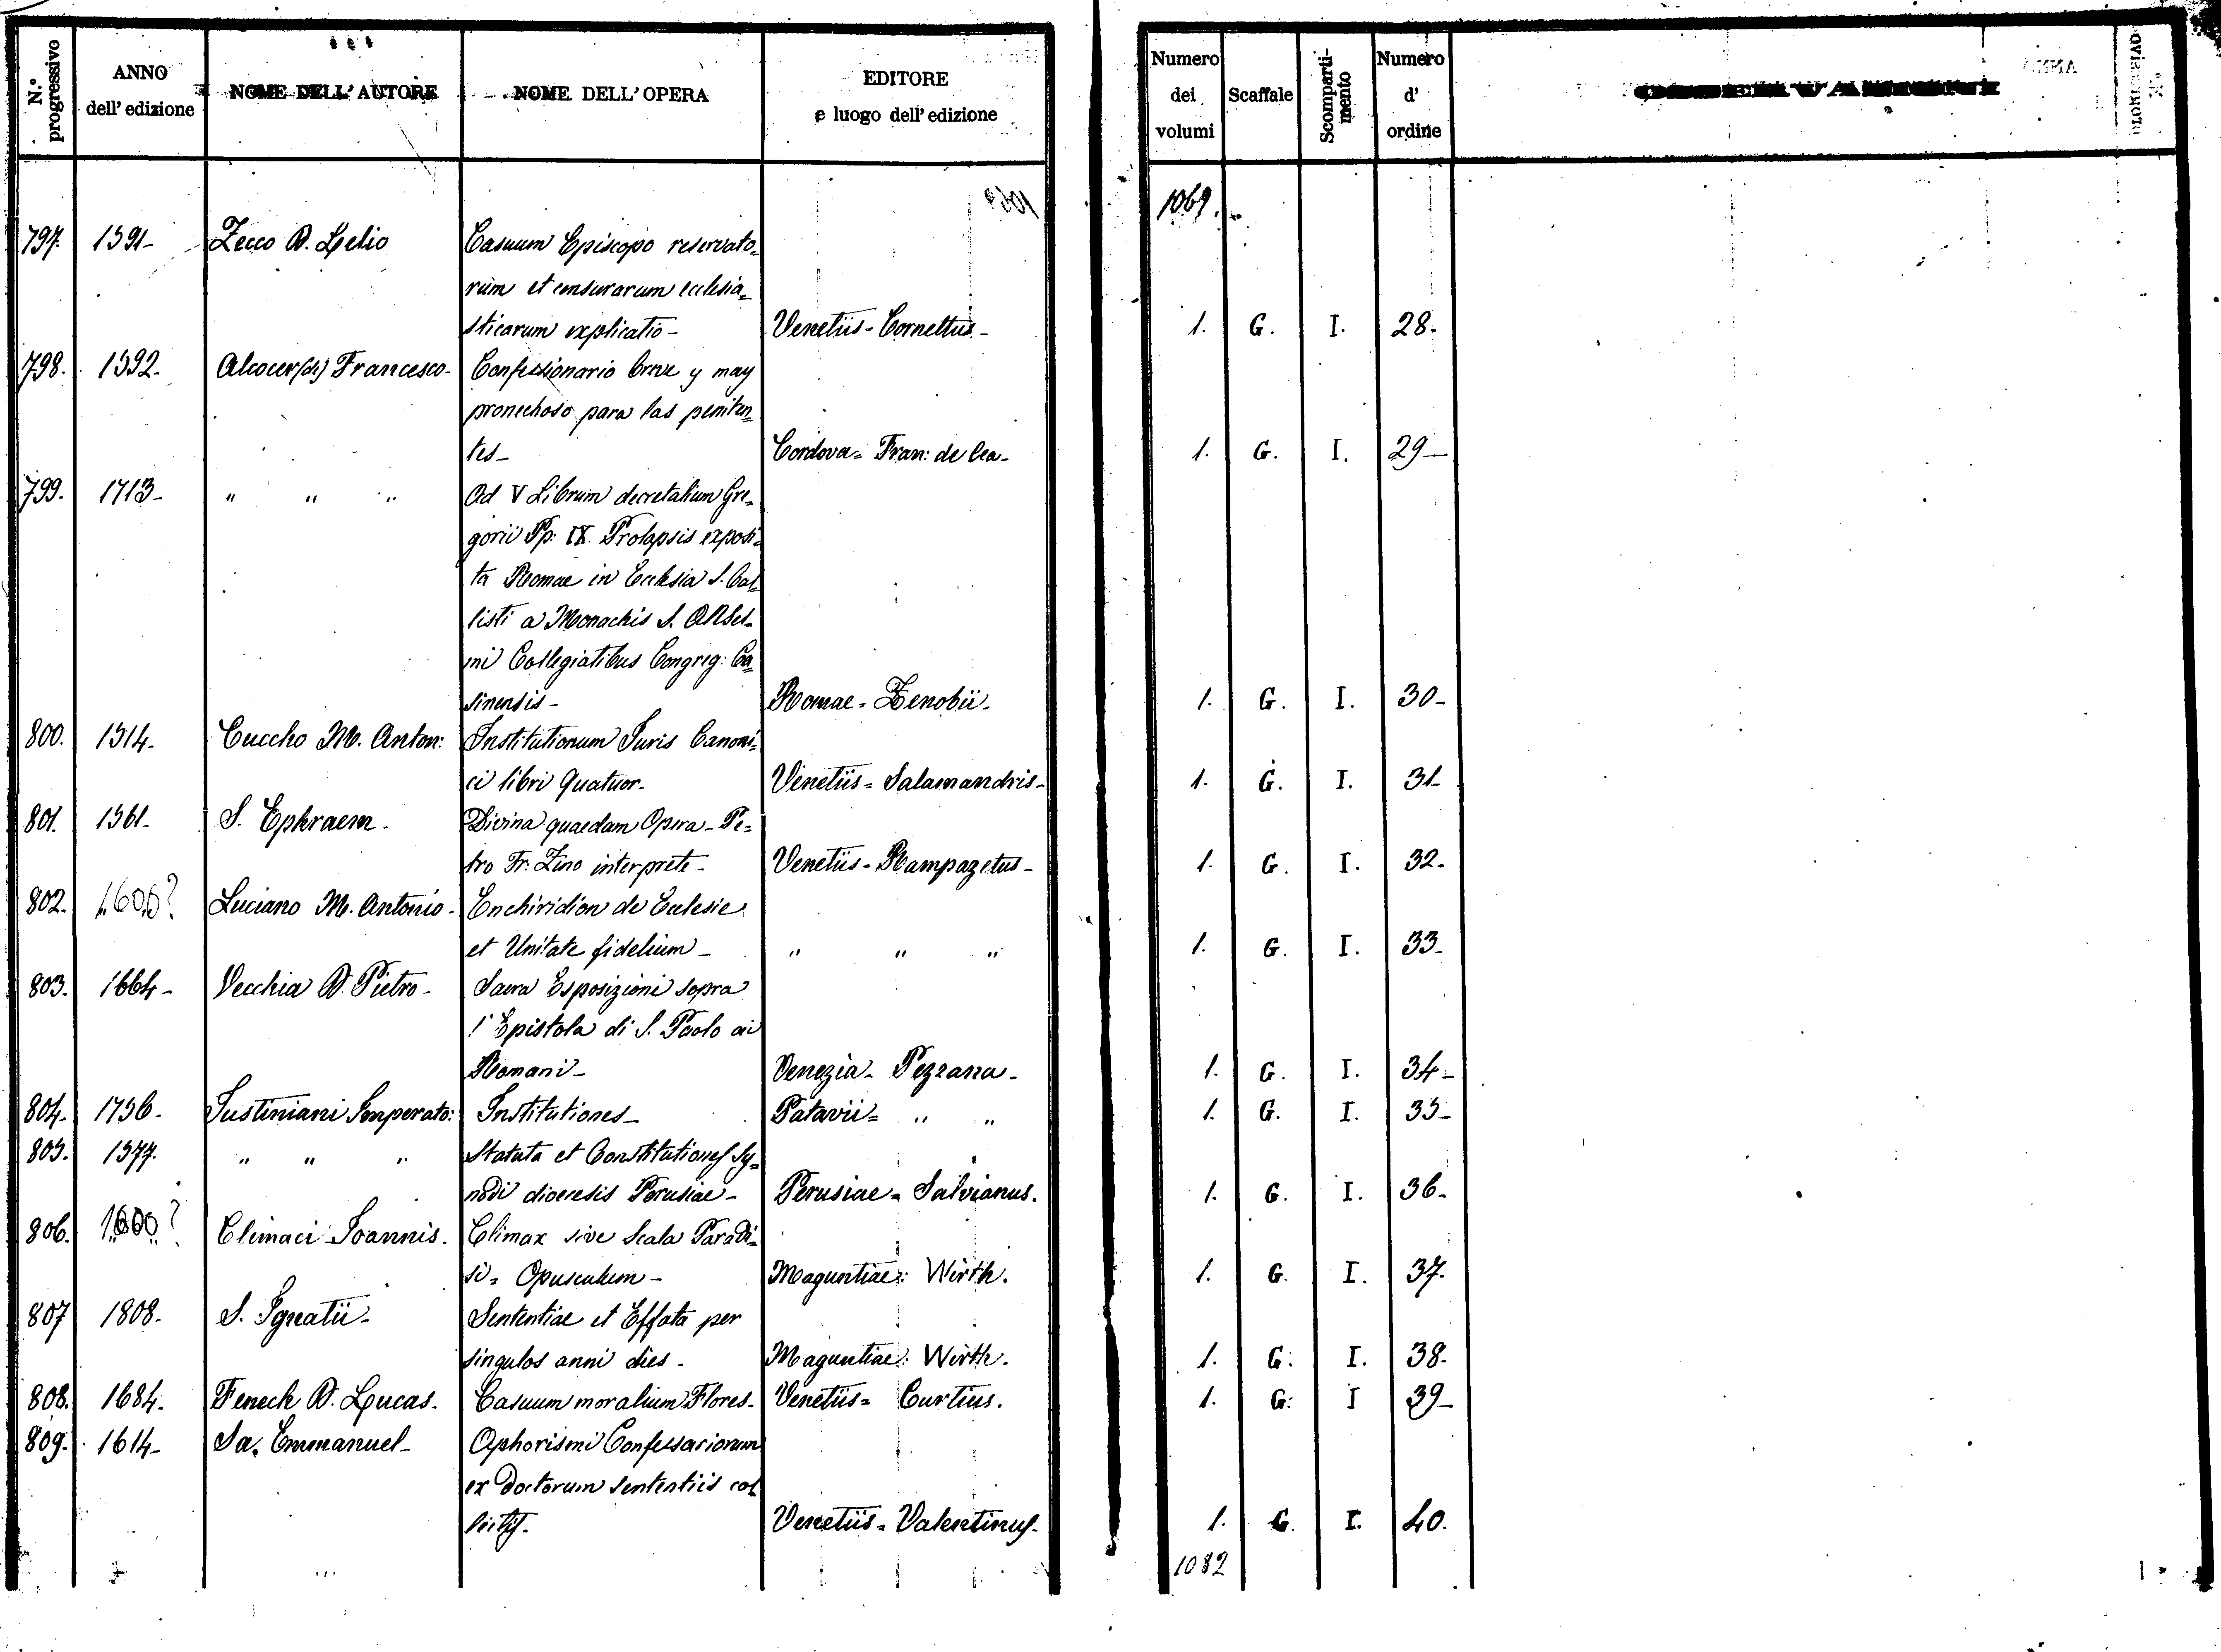 N.° progressivo | ANNO dell' edizione | NOME DELL' AUTORE | NOME DELL' OPERA | EDITORE e luogo dell' edizione | Numero dei volumi | Scaffale | Scomparti-mento | Numero d' ordine
1069.
797. 1591- Zecco D. Lelio Casuum Episcopo reservato=
rum et censurarum ecclesia=
sticarum explicatio- Venetiis- Cornettus- 1. G. I. 28.
798. 1592. Alcocer (de) Francesco- Confessionario breve y may
pronechoso para las peniten=
tes- Cordova= Fran: de Cea- 1. G. I. 29-
799. 1713- " " " Ad V Librum decretalium Gre=
gorii Pp: IX. Prolapsis exposi=
ta Romae in Ecclesia S. Cal=
listi a Monachis S. Ansel-
mi Collegiatibus Congreg: Ca=
sinensis- Romae= Zenobii- 1. G. I. 30-
800. 1514- Cuccho M. Anton: Institutionum Juris Canoni=
ci libri Quatuor- Venetiis= Salamandris- 1. G. I. 31-
801. 1561- S. Ephraem- Divina quaedam Opera- Pe=
tro Fr: Zino interprete- Venetiis- Rampazetus- 1. G. I. 32-
802. 1600? Luciano M. Antonio- Enchiridion de Ecclesie
et Unitate fidelium- " " " 1. G. I. 33-
803. 1664- Vecchia D. Pietro- Sacra Esposizioni sopra
l' Epistola di S. Paolo ai
Romani- Venezia- Pezzana- 1. G. I. 34-
804- 1756- Justiniani Imperato: Institutiones- Patavii= " " 1. G. I. 35-
805. 1577. " " " Statuta et Constitutiones Sy=
nodi dioecesis Perusiae- Perusiae= Salvianus. 1. G. I. 36-
806. 1600? Climaci Joannis. Climax sive Scala Paradi=
si= Opusculum- Maguntiae: Wirth. 1. G. I. 37.
807 1808- S. Ignatii- Sententiae et Effata per
singulos anni dies- Maguntiae: Wirth. 1. G: I. 38-
808. 1684. Feneck D. Lucas. Casuum moralium Flores- Venetiis= Curtius. 1. G: I 39-
809. 1614- Sa. Emmanuel- Aphorismi Confessariorum
ex Doctorum sententiis col
lectis. Venetiis= Valentinus- 1. G. I. 40.
1082